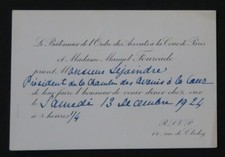 Le Bâtonnier de l'Ordre des Avocats à la Cour de Paris
et Madame Manuel Fourcade
prient Monsieur Lejeindre
Président de la Chambre des Avoués à la Cour
de leur faire l'honneur de venir dîner chez eux le
Samedi 13 Decembre 1924
à 8 heures 1/4
R.S.V.P.
rue de Clichy